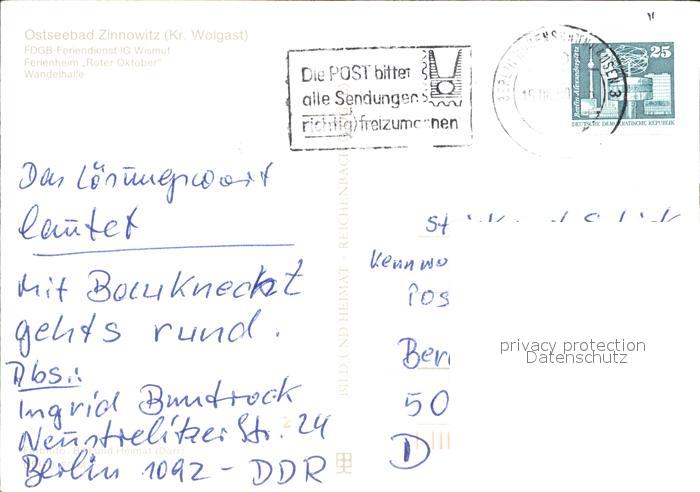 Ostseebad Zinnowitz (Kr. Wolgast)
FDGB-Feriendienst IG Wismut
Ferienheim „Roter Oktober"
Wandelhalle
Die POST bittet
alle Sendungen
richtig freizumachen
25
Berlin-Alexanderplatz
DEUTSCHE DEMOKRATISCHE REPUBLIK
Das Lösungswort
lautet
mit Bauknecht
gehts rund.
Abs.:
Ingrid Buntrock
Neustrelitzer Str. 24
Berlin 1092 - DDR
BILD UND HEIMAT - REICHENBACH
St
Kennwo
Pos
Ber
50
D
privacy protection
Datenschutz